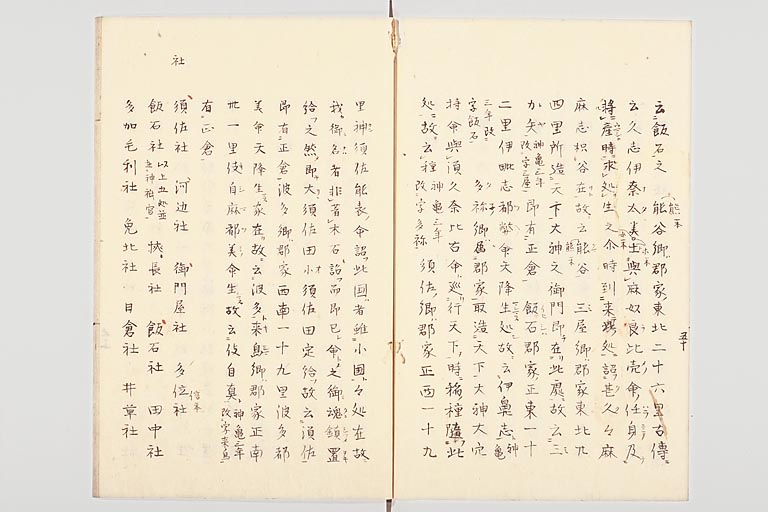 五十
云飯石之 熊谷郷郡家東北二十六里古傳
云久志伊奈太美等與麻奴良比売命任身及
将産時求処生之尒時到来坐処詔甚久々麻
麻志枳谷在故云熊谷 三屋郷郡家東北廾
四里所造天下大神之御門即在此處故云三
か矢 神亀三年改字三屋 即有正倉 飯石郷郡家正東一十
二里伊毗志都幣命天降生処故云伊鼻志 神亀
三年改字飯石 多祢郷属郡家所造天下大神大穴
持命與須久奈比古命巡行天下時稲種隨此
処故云種 神亀三年改字多祢 須佐郷郡家正西一十九
里神須佐能袁命詔此国者雖小国々処在故
我御名者非著木石詔而即己命之御魂鎮置
給之然即大須佐田小須佐田定給故云須佐
即有正倉 波多郷郡家西南一十九里波多都
美命天降生家在故云波多 来島郷郡家正南
卅一里伎自麻都美命生故云伎自真 神亀三年改字来島
有正倉
社
須佐社 河辺社 御門屋社 多倍社
飯石社 以上五処並在神祇官 狭長社 飯石社 田中社
多加毛利社 兎比社 日倉社 井草社